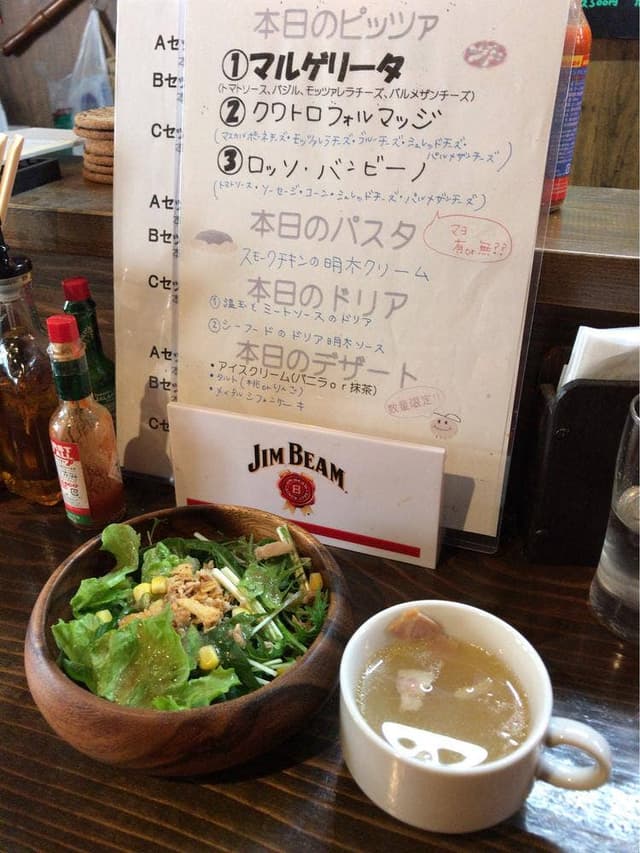 本日のピッツァ
①マルゲリータ
(トマトソース、バジル、モッツァレラチーズ、パルメザンチーズ)
②クワトロフォルマッジ
(マスカルポーネチーズ・モッツァレラチーズ・ブルーチーズ・シュレッドチーズ・
パルメザンチーズ)
③ロッソ・バンビーノ
(トマトソース・ソーセージ・コーン・シュレッドチーズ・パルメザンチーズ)
本日のパスタ
マヨ
有or無??
スモークチキンの明太クリーム
本日のドリア
①温玉とミートソースのドリア
②シーフードのドリア明太ソース
本日のデザート
・アイスクリーム(バニラor抹茶)
・タルト(桃orりんご)
・メイプルシフォンケーキ
数量限定!!
Aセッ
Bセッ
Cセッ
Aセッ
Bセッ
Cセ
Aセ
Bセ
Cセ
JIM BEAM